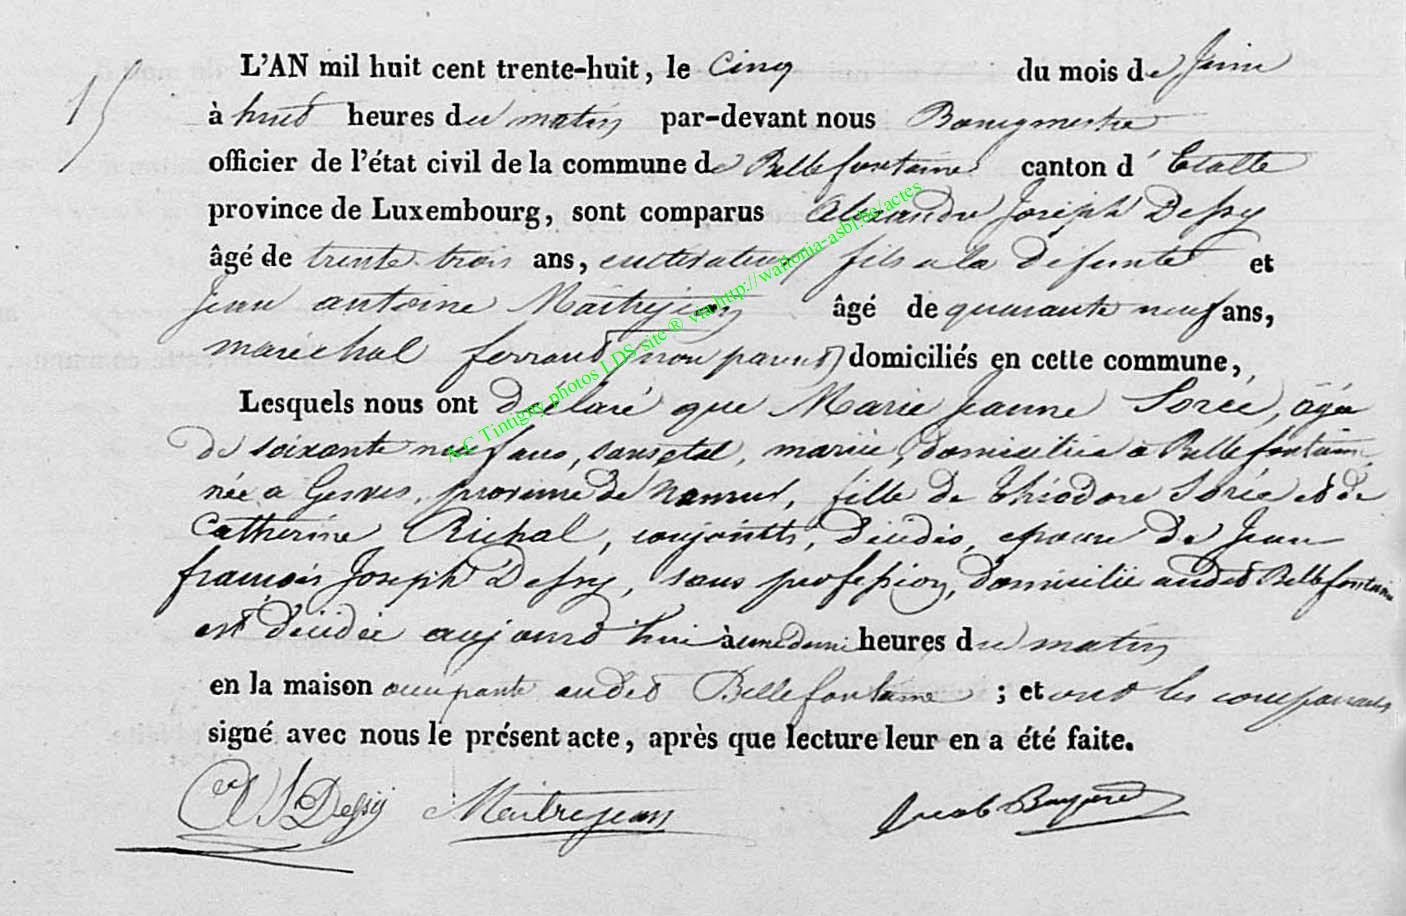 15
L'AN mil huit cent trente-huit, le Cinq du mois de Juin
à huit heures du matin par-devant nous Bourgmestre
officier de l'état civil de la commune de Bellefontaine canton d'Etalle
province de Luxembourg, sont comparus Alexandre Joseph Dessy
âgé de trente-trois ans, cultivateur, fils a la défunte et
Jean antoine Maitrejean âgé de quarante neuf ans,
maréchal ferrand (non parent) domiciliés en cette commune,
Lesquels nous ont déclaré que Marie Jeanne Sorée, âgée
de soixante neuf ans, sans etat, mariée, domiciliée a Bellefontaine
née a Gesves, province de Namur, fille de Théodore Sorée et de
Catherine Richal, conjoints, décédés, epouse de Jean
françois Joseph Dessy, sans profession, domicilié audit Bellefontaine
est décédée aujourd'hui à une demi heures du matin
en la maison occupante audit Bellefontaine ; et ont les comparans
signé avec nous le présent acte, après que lecture leur en a été faite.
AJ Dessy Maitrejean Jacob
A.C Tintigny photos LDS site ® via http://wallonia-asbl.be/actes